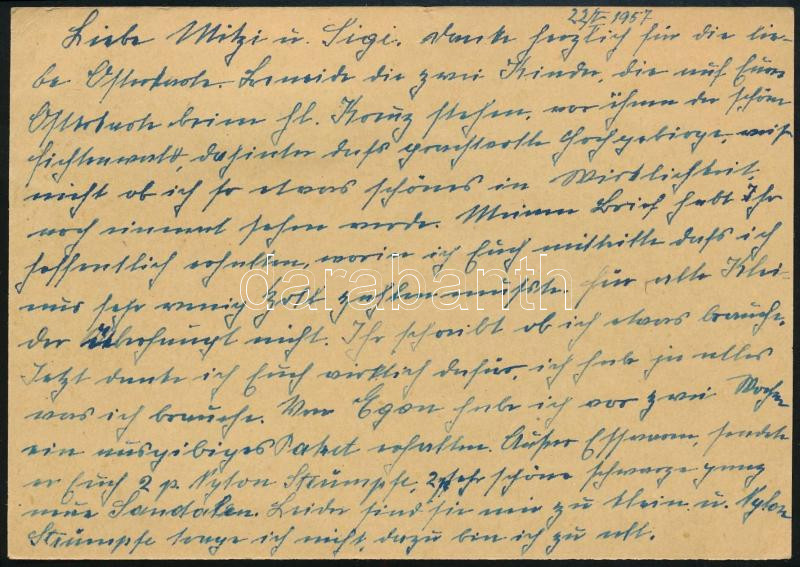 22/V 1957
Liebe Mitzi u. Sigi. Danke herzlich für die lie-
be Osterkarte. Beneide die zwei Kinder, die auf Eurer
Osterkarte beim hl. Kreuz stehen, vor ihnen der schöne
Fichtenwald, dahinter dass prachtvolle Hochgebirge, weiß
nicht ob ich so etwas schönes in Wirklichkeit
noch einmal sehen werde. Meinen Brief habt Ihr
hoffentlich erhalten, worin ich Euch mitteilte dass ich
nur sehr wenig Zoll zahlen musste. Für alte Klei-
der überhaupt nicht. Ihr schreibt ob ich etwas brauche.
Jetzt danke ich Euch wirklich dafür, ich habe ja alles
was ich brauche. Von Egon habe ich vor zwei Wochen
ein ausgibiges Paket erhalten. Außer Esswaren, sendete
er Euch 2 p. Nylon Strümpfe, 2 p. sehr schöne schwarze ganz
neue Sandalen. Leider sind sie mir zu klein u. Nylon
Strümpfe trage ich nicht, dazu bin ich zu alt.
darabanth